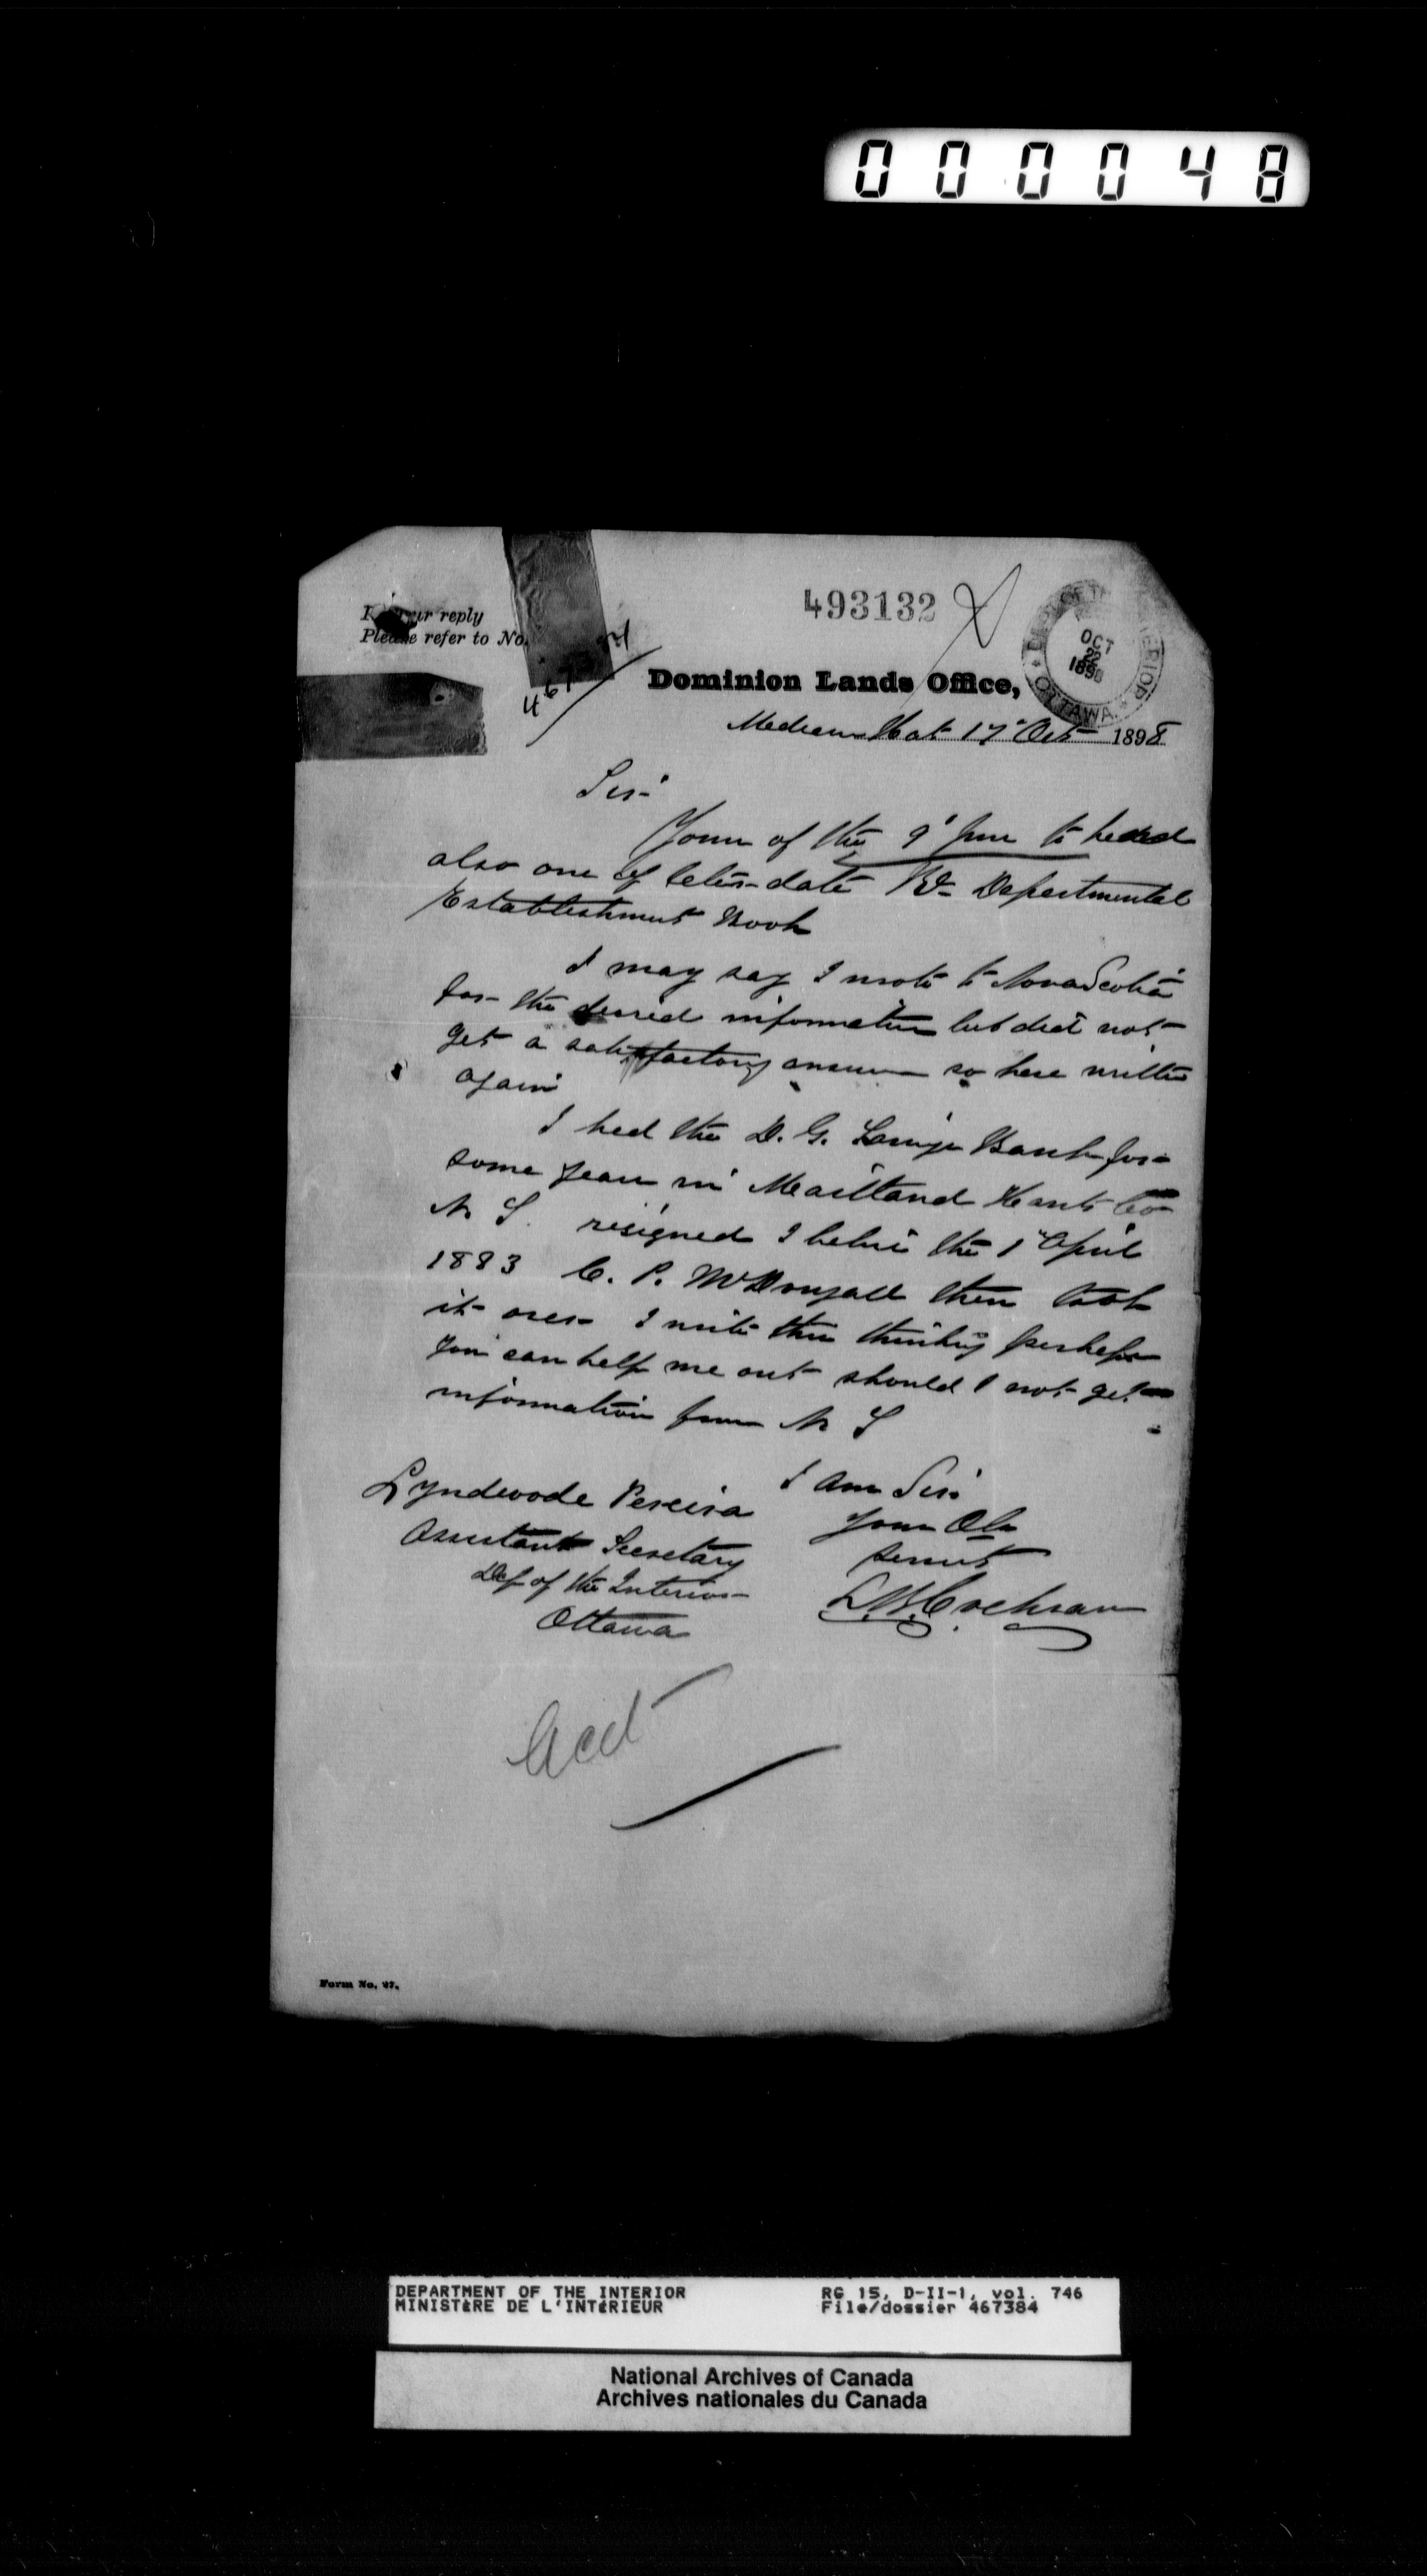 000048
In your reply
Please refer to No.
493132
DEPT OF THE INTERIOR
OCT
22
1898
OTTAWA
Dominion Lands Office,
Medicine Hat 17" Oct 1898
Sir
Yours of the 9' June to hand
also one of later date Re Departmental
Establishment Book
I may say I wrote to Nova Scotia
for the desired information but did not
get a satisfactory answer so have written
again
I had the D. G. Savings Bank for
some years in Maitland Hants Co
N. S. resigned I believe the 1" April
1883 C. P. McDougall then took
it over I write this thinking perhaps
you can help me out should I not get
information from N S
I am Sir
Your Ob
servant
Cochran
Lyndwode Pereira
Assistant Secretary
Dep of the Interior
Ottawa
Form No. 97.
DEPARTMENT OF THE INTERIOR RG 15, D-II-1, vol. 746
MINISTÈRE DE L'INTÉRIEUR File/dossier 467384
National Archives of Canada
Archives nationales du Canada